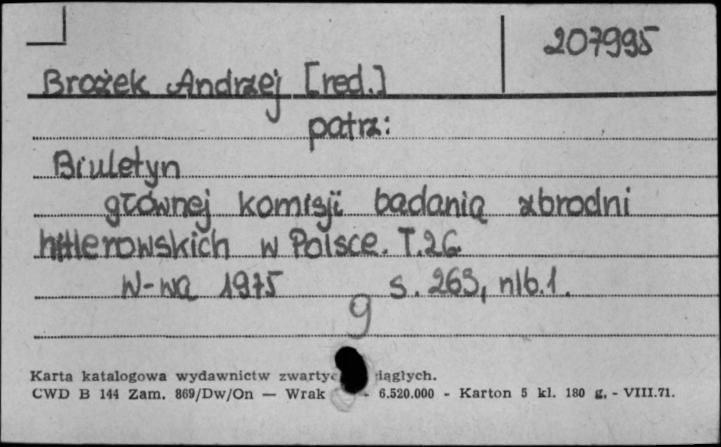 207995
Brożek Andrzej [red.]
patrz:
Biuletyn
głównej komisji badania zbrodni
hitlerowskich w Polsce. T.26
W-wa 1975 s. 263, nlb.1.
9
Karta katalogowa wydawnictw zwartyc iągłych.
CWD B 144 Zam. 869/Dw/On — Wrak - 6.520.000 - Karton 5 kl. 180 g. - VIII.71.